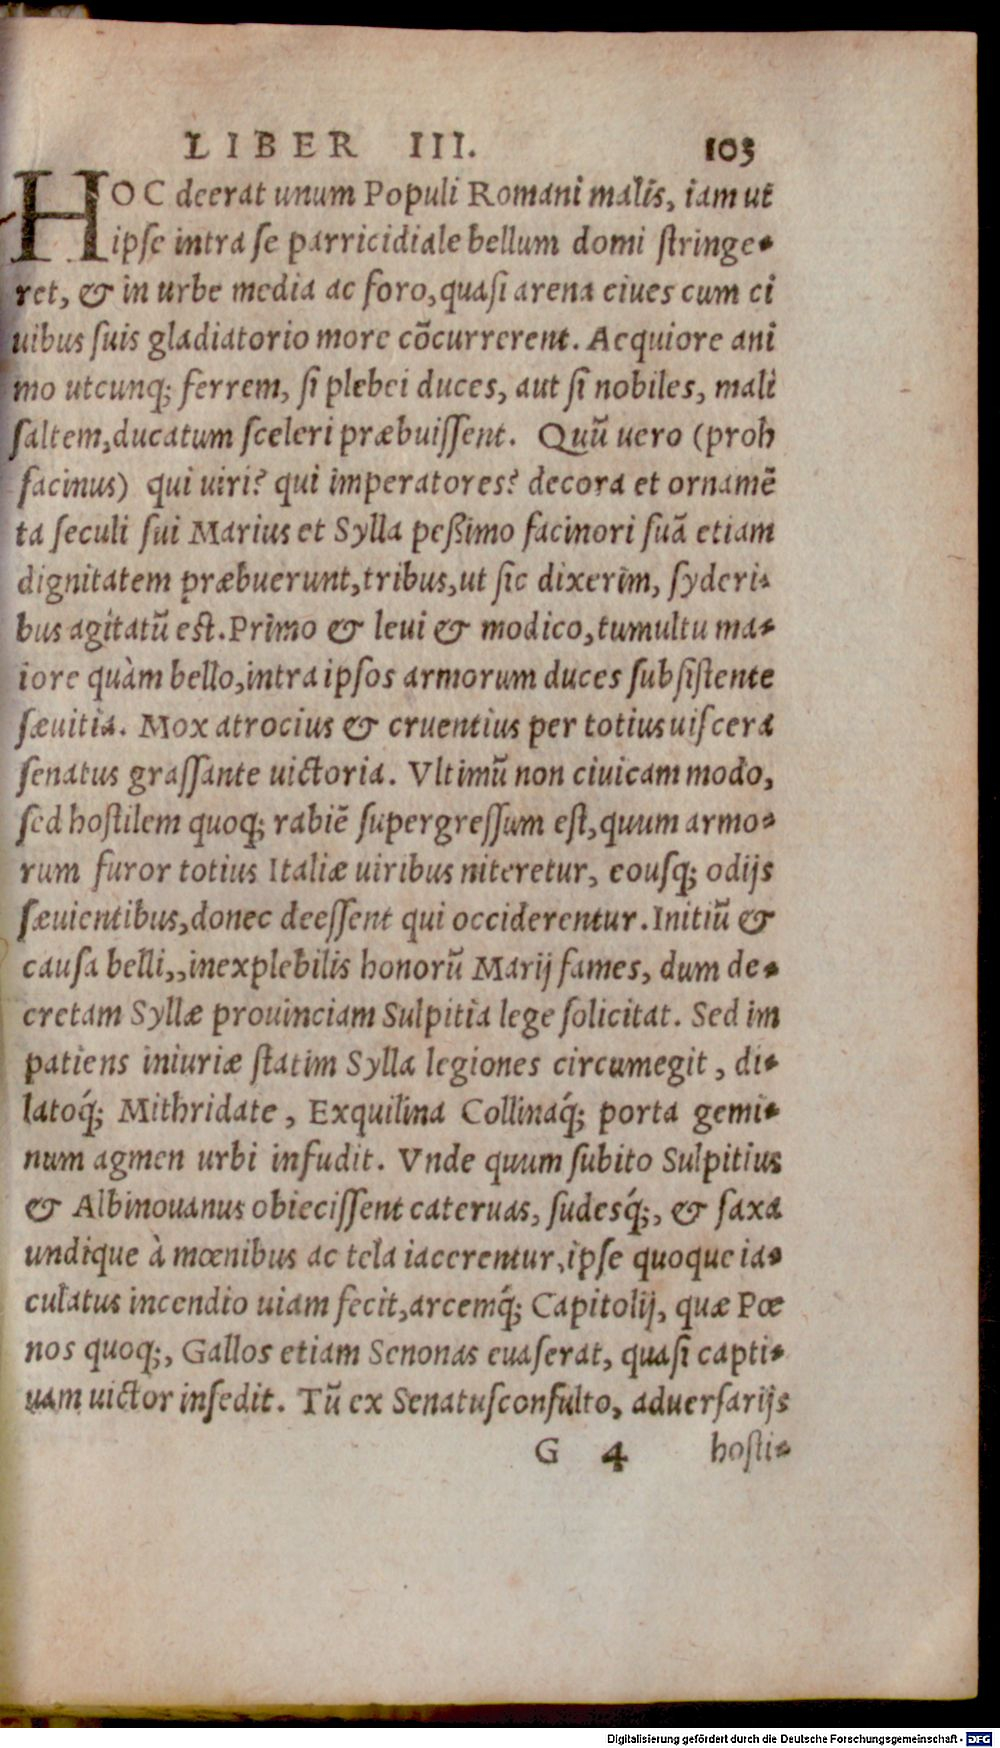 LIBER III. 103
HOC deerat unum Populi Romani malis, iam ut
ipse intra se parricidiale bellum domi stringe-
ret, & in urbe media ac foro, quasi arena ciues cum ci
uibus suis gladiatorio more cõcurrerent. Aequiore ani
mo utcunq; ferrem, si plebei duces, aut si nobiles, mali
saltem, ducatum sceleri præbuissent. Quũ uero (proh
facinus) qui uiri? qui imperatores? decora et ornamẽ
ta seculi sui Marius et Sylla peßimo facinori suã etiam
dignitatem præbuerunt, tribus, ut sic dixerim, syderi-
bus agitatũ est. Primo & leui & modico, tumultu ma-
iore quàm bello, intra ipsos armorum duces subsistente
sæuitia. Mox atrocius & cruentius per totius uiscera
senatus grassante uictoria. Vltimũ non ciuicam modo,
sed hostilem quoq; rabiẽ supergressum est, quum armo-
rum furor totius Italiæ uiribus niteretur, eousq; odijs
sæuientibus, donec deessent qui occiderentur. Initiũ &
causa belli,, inexplebilis honorũ Marij fames, dum de-
cretam Syllæ prouinciam Sulpitia lege solicitat. Sed im
patiens iniuriæ statim Sylla legiones circumegit, di-
latoq́; Mithridate, Exquilina Collinaq́; porta gemi-
num agmen urbi infudit. Vnde quum subito Sulpitius
& Albinouanus obiecissent cateruas, sudesq́;, & saxa
undique à mœnibus ac tela iacerentur, ipse quoque ia-
culatus incendio uiam fecit, arcemq́; Capitolij, quæ Pœ
nos quoq;, Gallos etiam Senonas euaserat, quasi capti-
uam uictor insedit. Tũ ex Senatusconsulto, aduersarijs
G 4 hosti-
Digitalisierung gefördert durch die Deutsche Forschungsgemeinschaft - DFG